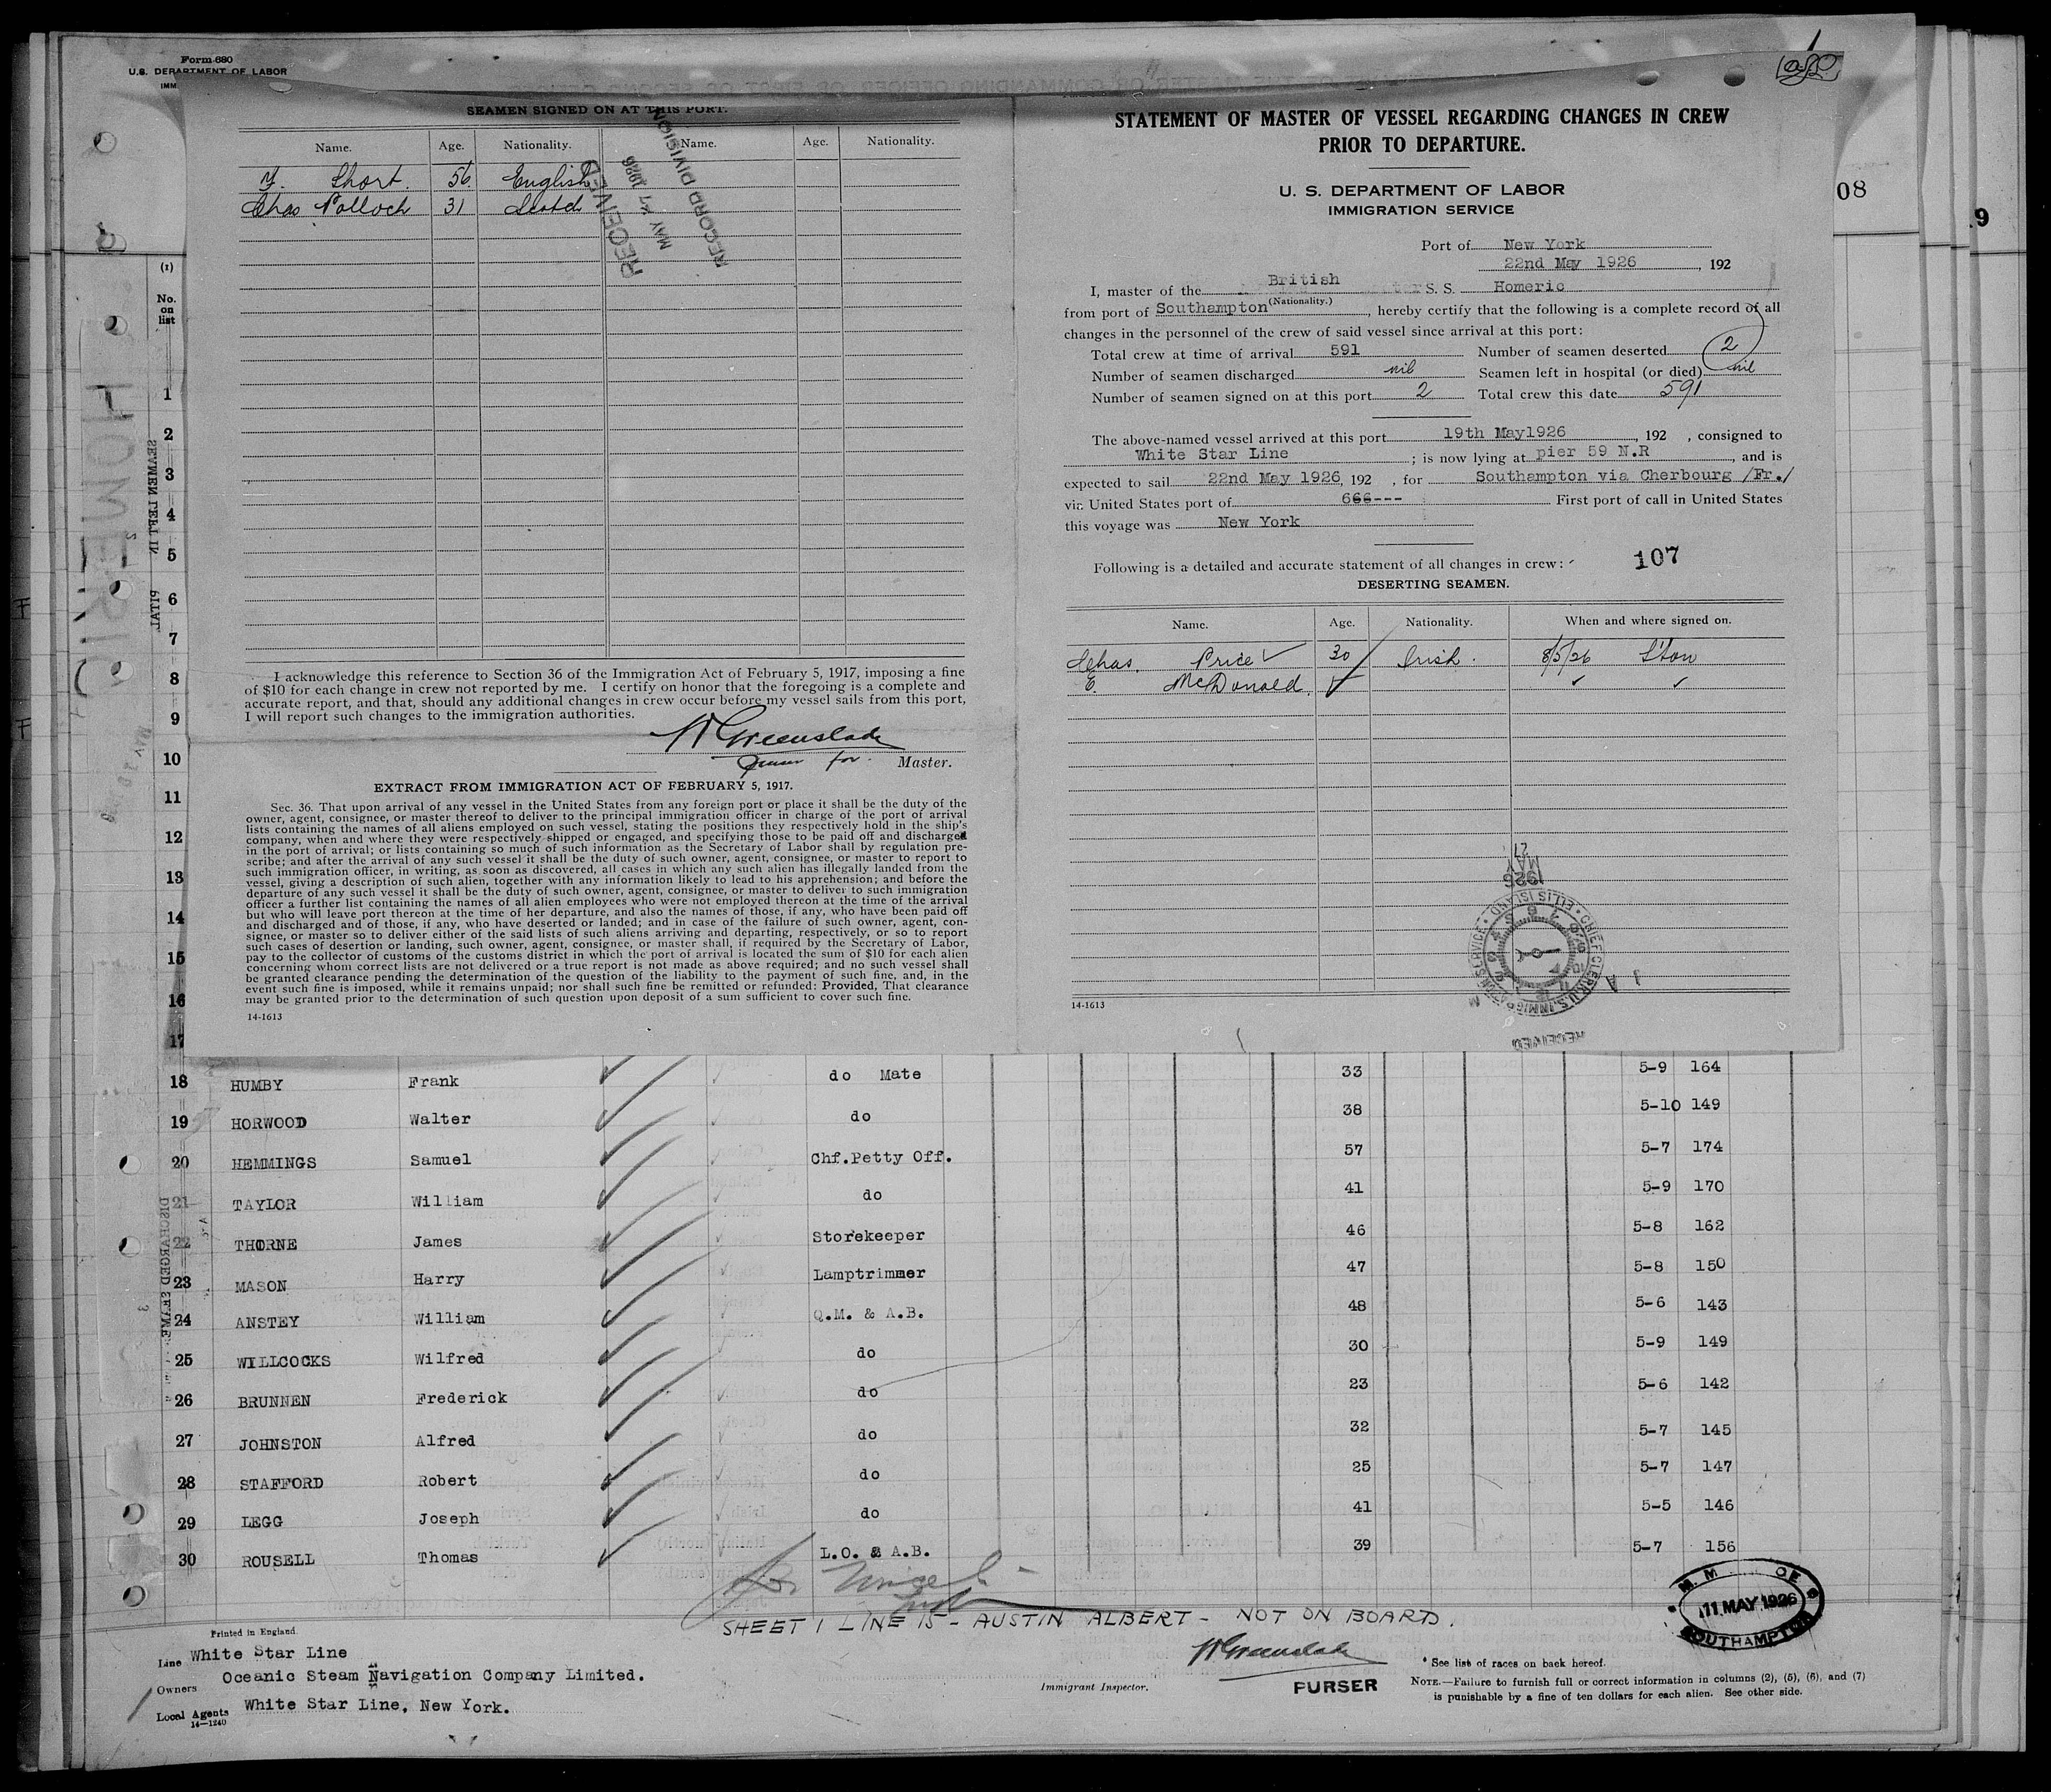 Form 680
U.S. DEPARTMENT OF LABOR
SEAMEN SIGNED ON AT THIS PORT.
Name. Age. Nationality. Name. Age. Nationality.
Short. 56 English
Chas Pollock 31 Scotch
RECEIVED
MAY 27 1926
RECORD DIVISION
I acknowledge this reference to Section 36 of the Immigration Act of February 5, 1917, imposing a fine
of $10 for each change in crew not reported by me. I certify on honor that the foregoing is a complete and
accurate report, and that, should any additional changes in crew occur before my vessel sails from this port,
I will report such changes to the immigration authorities.
Greenslade
Purser for. Master.
EXTRACT FROM IMMIGRATION ACT OF FEBRUARY 5, 1917.
Sec. 36. That upon arrival of any vessel in the United States from any foreign port or place it shall be the duty of the
owner, agent, consignee, or master thereof to deliver to the principal immigration officer in charge of the port of arrival
lists containing the names of all aliens employed on such vessel, stating the positions they respectively hold in the ship's
company, when and where they were respectively shipped or engaged, and specifying those to be paid off and discharged
in the port of arrival; or lists containing so much of such information as the Secretary of Labor shall by regulation pre-
scribe; and after the arrival of any such vessel it shall be the duty of such owner, agent, consignee, or master to report to
such immigration officer, in writing, as soon as discovered, all cases in which any such alien has illegally landed from the
vessel, giving a description of such alien, together with any information likely to lead to his apprehension; and before the
departure of any such vessel it shall be the duty of such owner, agent, consignee, or master to deliver to such immigration
officer a further list containing the names of all alien employees who were not employed thereon at the time of the arrival
but who will leave port thereon at the time of her departure, and also the names of those, if any, who have been paid off
and discharged and of those, if any, who have deserted or landed; and in case of the failure of such owner, agent, con-
signee, or master so to deliver either of the said lists of such aliens arriving and departing, respectively, or so to report
such cases of desertion or landing, such owner, agent, consignee, or master shall, if required by the Secretary of Labor,
pay to the collector of customs of the customs district in which the port of arrival is located the sum of $10 for each alien
concerning whom correct lists are not delivered or a true report is not made as above required; and no such vessel shall
be granted clearance pending the determination of the question of the liability to the payment of such fine, and, in the
event such fine is imposed, while it remains unpaid; nor shall such fine be remitted or refunded: Provided, That clearance
may be granted prior to the determination of such question upon deposit of a sum sufficient to cover such fine.
14-1613
STATEMENT OF MASTER OF VESSEL REGARDING CHANGES IN CREW
PRIOR TO DEPARTURE.
U. S. DEPARTMENT OF LABOR
IMMIGRATION SERVICE
Port of New York
22nd May 1926, 192
I, master of the British S. S. Homeric
(Nationality.)
from port of Southampton, hereby certify that the following is a complete record of all
changes in the personnel of the crew of said vessel since arrival at this port:
Total crew at time of arrival 591 Number of seamen deserted 2
Number of seamen discharged nil Seamen left in hospital (or died) nil
Number of seamen signed on at this port 2 Total crew this date 591
The above-named vessel arrived at this port 19th May1926, 192 , consigned to
White Star Line ; is now lying at pier 59 N.R, and is
expected to sail 22nd May 1926, 192 , for Southampton via Cherbourg /Fr./
via United States port of 666--- First port of call in United States
this voyage was New York
Following is a detailed and accurate statement of all changes in crew:
107
DESERTING SEAMEN.
Name. Age. Nationality. When and where signed on.
Chas. Price 30 Irish. 8/5/26 S'ton
E. McDonald.
MAY 27 1926
CHIEF CLERK U.S. IMMIGRATION SERVICE ELLIS ISLAND
RECEIVED
14-1613
08
9
HOMERIC
(1)
No.
on
list
1
2
3
4
5
6
7
8
9
10
11
12
13
14
15
16
17
18 HUMBY Frank do Mate 33 5-9 164
19 HORWOOD Walter do 38 5-10 149
20 HEMMINGS Samuel Chf.Petty Off. 57 5-7 174
21 TAYLOR William do 41 5-9 170
22 THORNE James Storekeeper 46 5-8 162
23 MASON Harry Lamptrimmer 47 5-8 150
24 ANSTEY William Q.M. & A.B. 48 5-6 143
25 WILLCOCKS Wilfred do 30 5-9 149
26 BRUNNEN Frederick do 23 5-6 142
27 JOHNSTON Alfred do 32 5-7 145
28 STAFFORD Robert do 25 5-7 147
29 LEGG Joseph do 41 5-5 146
30 ROUSELL Thomas L.O. & A.B. 39 5-7 156
SHEET 1 LINE 15 - AUSTIN ALBERT - NOT ON BOARD.
11 MAY 1926
SOUTHAMPTON
Printed in England.
Line White Star Line
Owners Oceanic Steam Navigation Company Limited.
Local Agents White Star Line, New York.
14-1240
Immigrant Inspector.
Greenslade
PURSER
* See list of races on back hereof.
NOTE.—Failure to furnish full or correct information in columns (2), (5), (6), and (7)
is punishable by a fine of ten dollars for each alien. See other side.